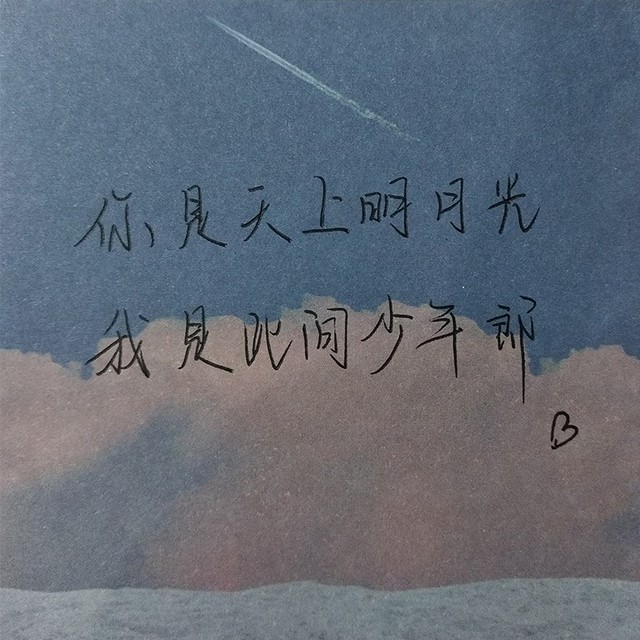 你是天上明月光
我是此间少年郎